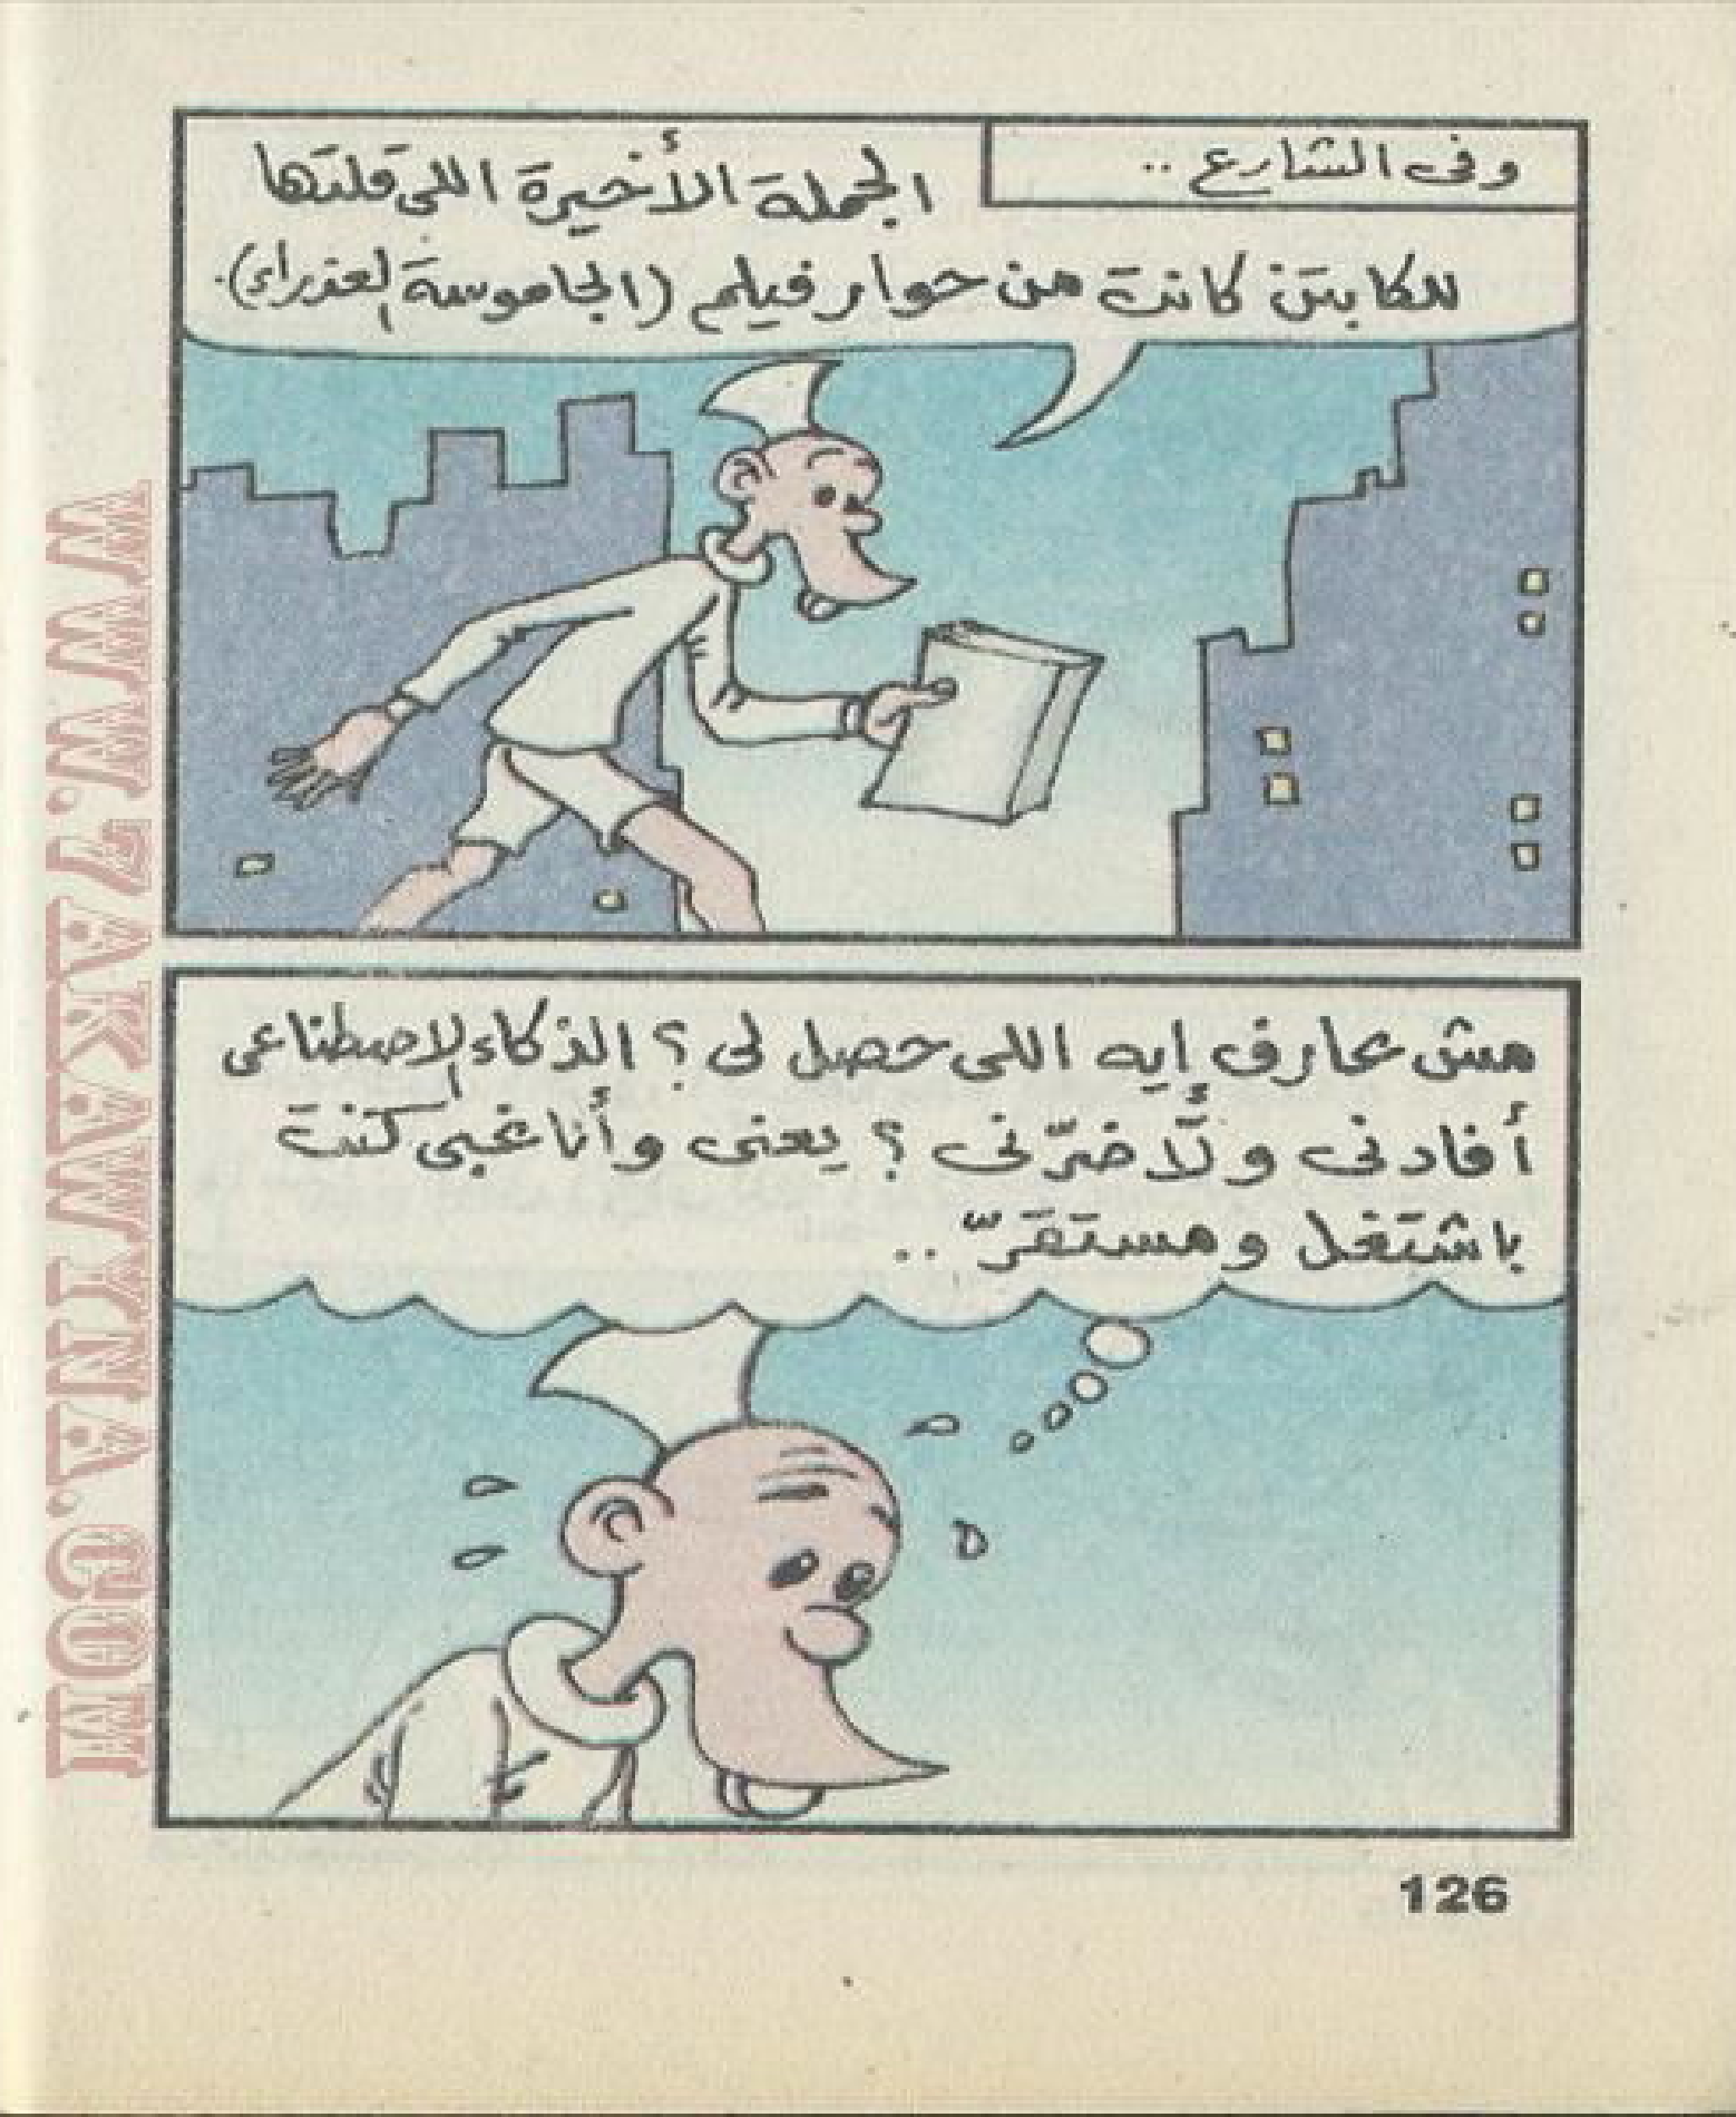 وفى الشارع ..
الجملة الأخيرة اللى قلتها
للكابتن كانت من حوار فيلم (الجاموسة العذراء).
مش عارف إيه اللى حصل لى؟ الذكاء الإصطناعى
أفادنى ولَّا ضرّنى؟ يعنى وأنا غبى كنت
باشتغل ومستقرّ ..
126
WWW.7AKAWINA.COM